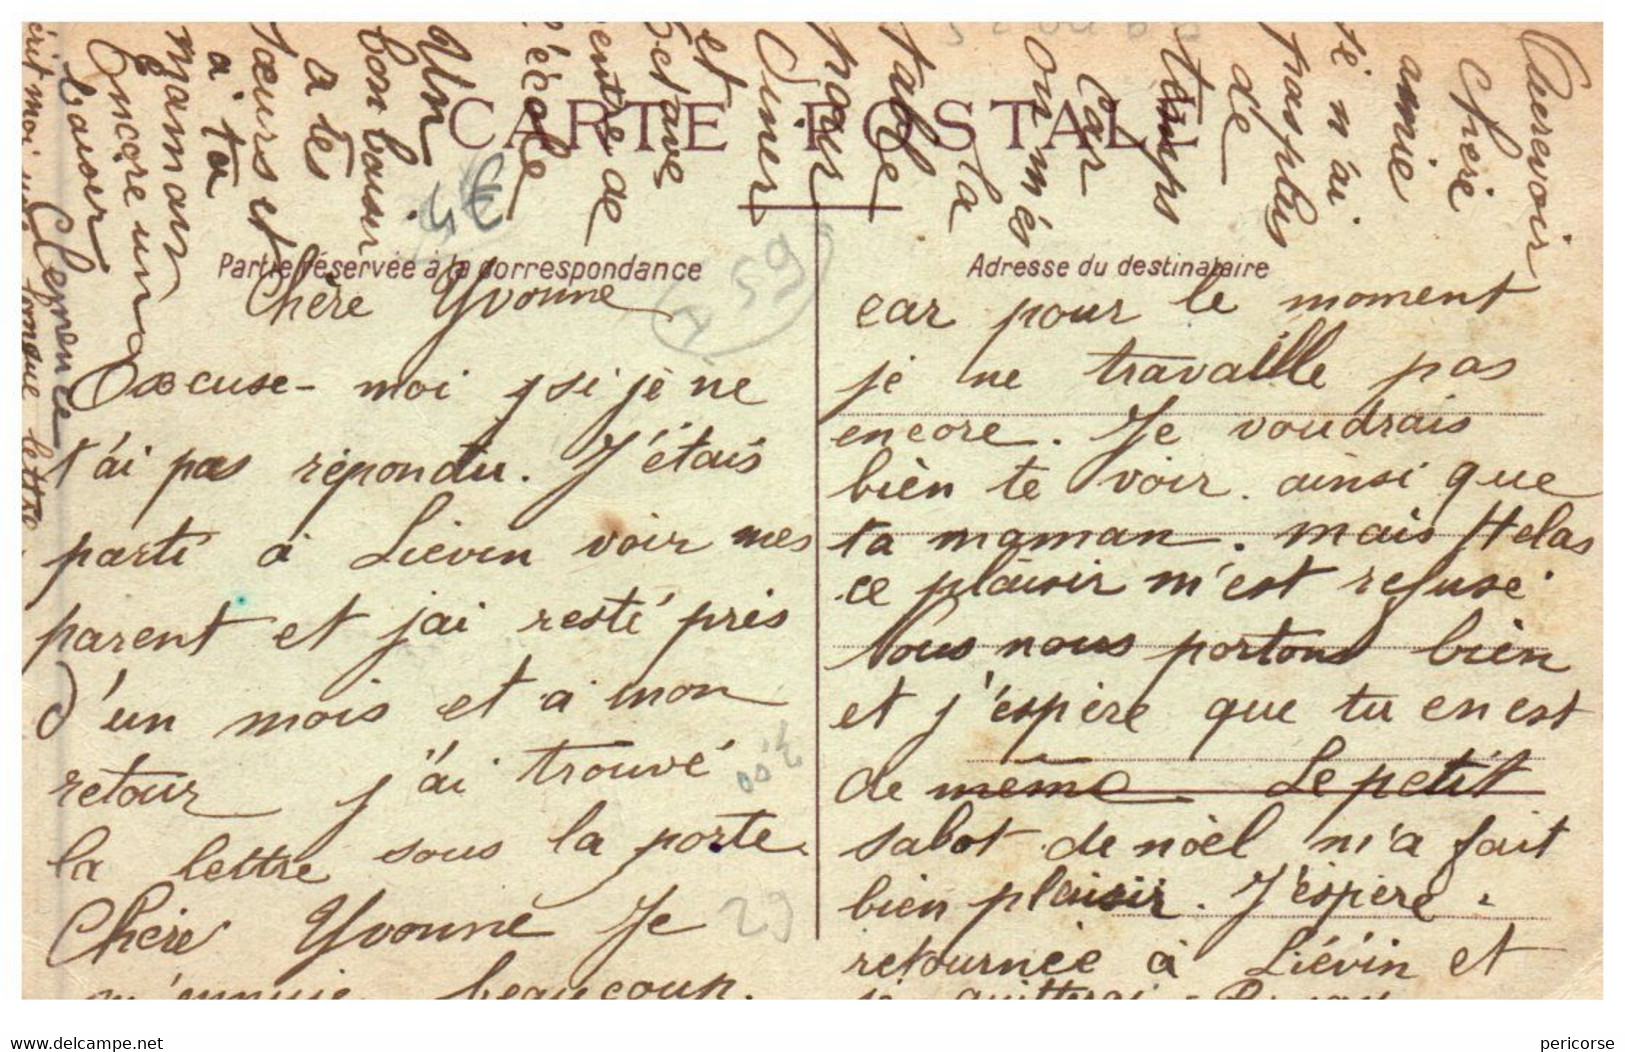 CARTE POSTALE
Partie réservée à la correspondance
Adresse du destinataire
Chère Yvonne
Excuse-moi si je ne
t'ai pas répondu. J'étais
parti à Liévin voir mes
parent et j'ai resté près
d'un mois et a mon
retour j'ai trouvé
la lettre sous la porte.
Chère Yvonne Je
m'ennuie beaucoup.
car pour le moment
je ne travaille pas
encore. Je voudrais
bièn te voir ainsi que
ta maman. mais Helas
ce plaisir m'est refusé
Tous nous portons bièn
et j'éspère que tu en est
de même. Le petit
sabot de noèl m'a fait
bien plaisir. J'éspère
retournée à Liévin et
je quitterai
Aurevoir
Chère
amie
je n'ai
pas plus
de
temps
car
on m'és
la
table
pour
diner
et
Octave
rentre de
l'école
Un
bon baiser
a tes
sœurs et
a ta
maman
Encore un
baiser
Clemence
écrit moi une longue lettre
59
29
www.delcampe.net
pericorse